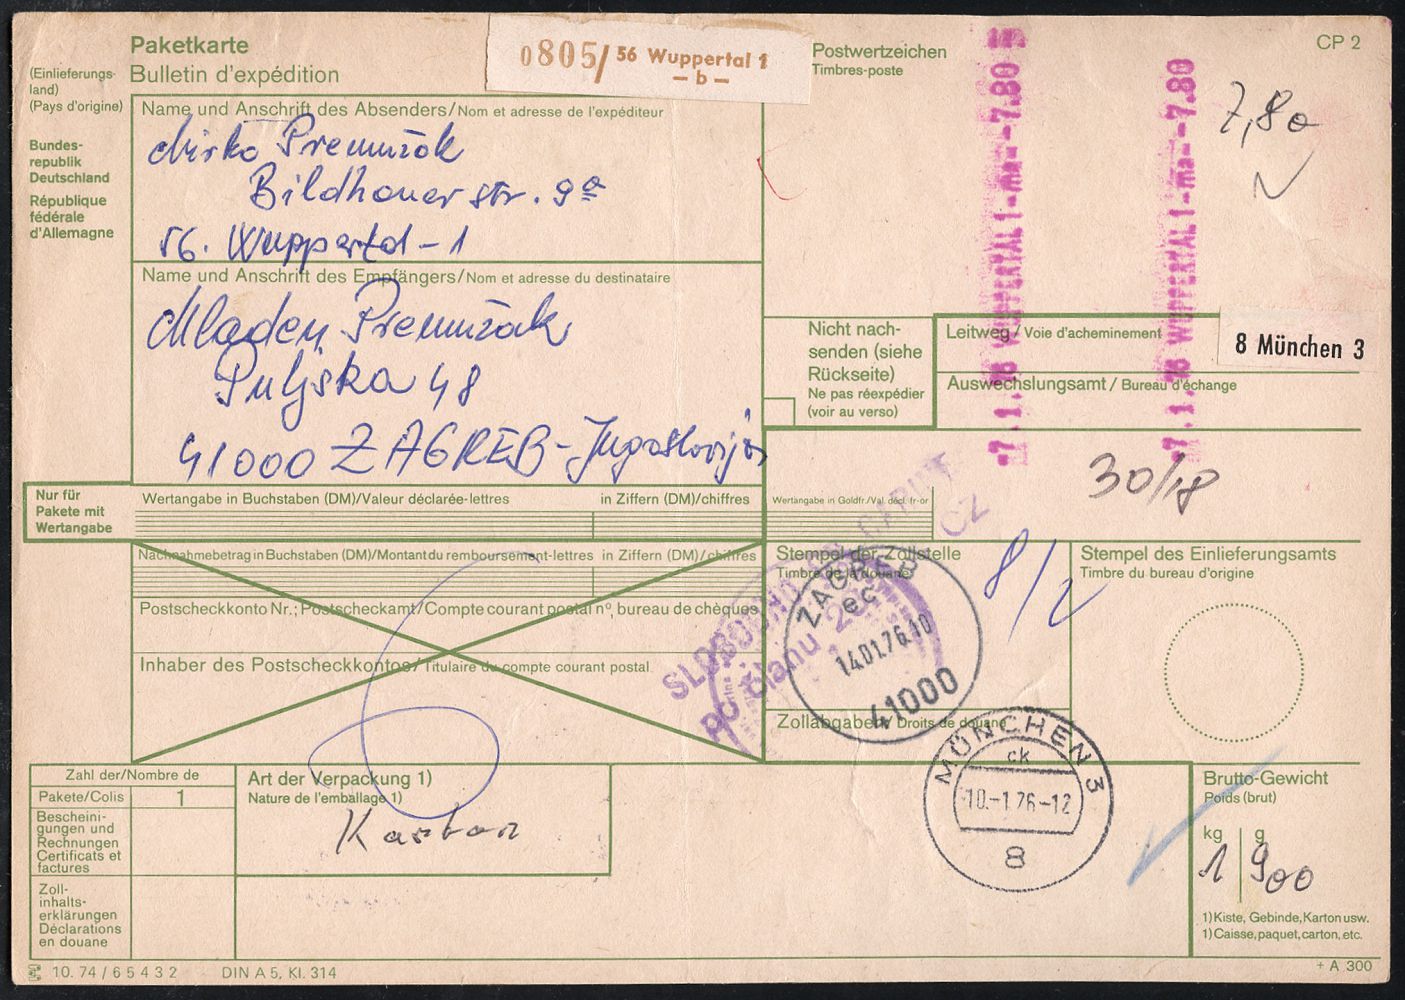 Paketkarte
Bulletin d'expédition
0805/ 56 Wuppertal 1
– b –
Postwertzeichen
Timbres-poste
CP 2
7,80
-7.1.76 WUPPERTAL 1-ma--7.80
-7.1.76 WUPPERTAL 1-ma--7.80
(Einlieferungs-
land)
(Pays d'origine)
Bundes-
republik
Deutschland
République
fédérale
d'Allemagne
Name und Anschrift des Absenders/Nom et adresse de l'expéditeur
Mirko Premužak
Bildhauer str. 9a
56. Wuppertal-1
Name und Anschrift des Empfängers/Nom et adresse du destinataire
Mladen Premužak
Puljska 48
41000 ZAGREB-Jugoslavija
Nicht nach-
senden (siehe
Rückseite)
Ne pas réexpédier
(voir au verso)
Leitweg/Voie d'acheminement
8 München 3
Auswechslungsamt/Bureau d'échange
30/18
Nur für
Pakete mit
Wertangabe
Wertangabe in Buchstaben (DM)/Valeur déclarée-lettres
in Ziffern (DM)/chiffres
Wertangabe in Goldfr./Val. décl. fr-or
Nachnahmebetrag in Buchstaben (DM)/Montant du remboursement-lettres
in Ziffern (DM)/chiffres
Postscheckkonto Nr.; Postscheckamt/Compte courant postal n°, bureau de chèques
Inhaber des Postscheckkontos/Titulaire du compte courant postal
Stempel der Zollstelle
Timbre de la douane
SLOBODNO OD CARINE
po članu 20 CZ
ZAGREB
ec
14.01.76.10
41000
8/2
Stempel des Einlieferungsamts
Timbre du bureau d'origine
Zollabgaben/Droits de douane
MÜNCHEN 3
ck
10.-1.76-12
8
Zahl der/Nombre de
Pakete/Colis
1
Bescheini-
gungen und
Rechnungen
Certificats et
factures
Zoll-
inhalts-
erklärungen
Déclarations
en douane
Art der Verpackung 1)
Nature de l'emballage 1)
Karton
Brutto-Gewicht
Poids (brut)
kg g
1 900
1) Kiste, Gebinde, Karton usw.
1) Caisse, paquet, carton, etc.
10. 74 / 6 5 4 3 2
DIN A 5, Kl. 314
+ A 300